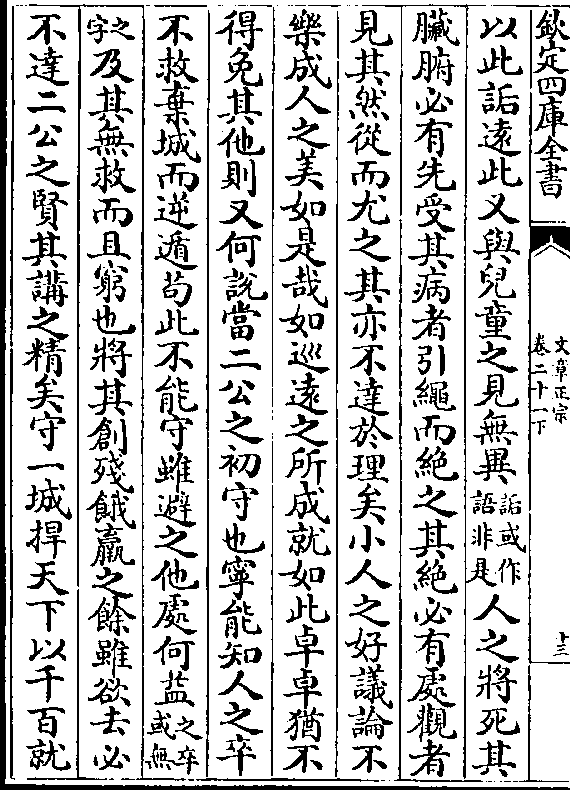 欽定四庫全書
文章正宗
卷二十一下
十三
以此詬遠此又與兒童之見無異詬或作語非是人之將死其
臟腑必有先受其病者引繩而絶之其絶必有處觀者
見其然從而尤之其亦不達於理矣小人之好議論不
樂成人之美如是哉如巡遠之所成就如此卓卓猶不
得免其他則又何說當二公之初守也寧能知人之卒
不救棄城而逆遁苟此不能守雖避之他處何益之卒或無
之字及其無救而且窮也將其創殘餓羸之餘雖欲去必
不達二公之賢其講之精矣守一城捍天下以千百就